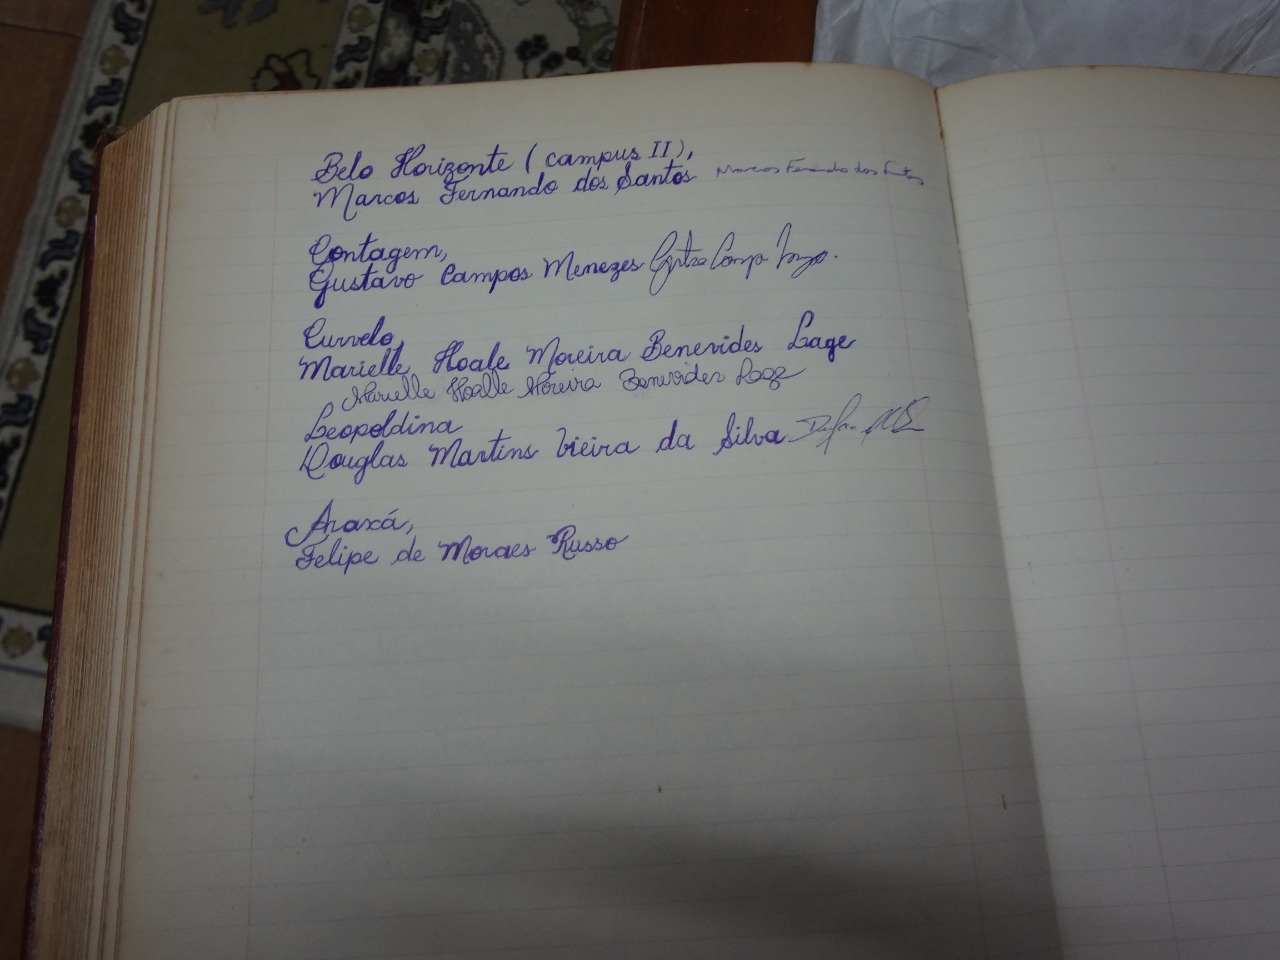 Belo Horizonte (campus II),
Marcos Fernando dos Santos Marcos Fernando dos Santos
Contagem,
Gustavo Campos Menezes
Curvelo,
Marielle Hoale Moreira Benevides Lage
Marielle Hoalle Moreira Benevides Lage
Leopoldina
Douglas Martins Vieira da Silva
Araxá,
Felipe de Moraes Russo